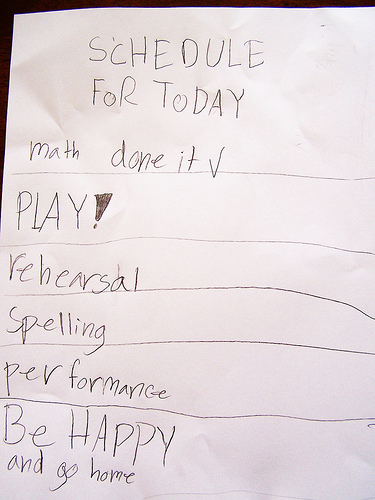 SCHEDULE
FOR TODAY
math done it ✓
PLAY!
rehearsal
Spelling
performance
Be HAPPY
and go home